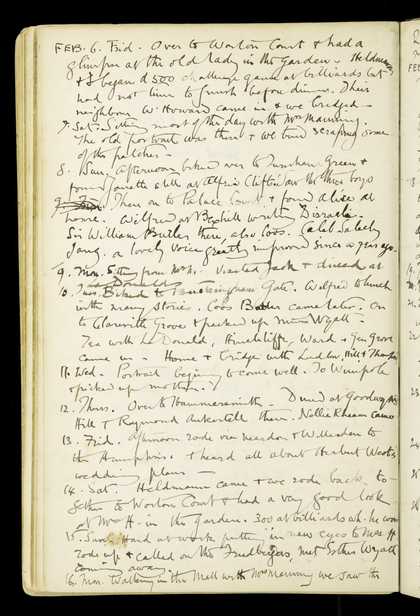 FEB. 6. Frid. Over to Worton Court & had a
glimpse at the old lady in the garden. Heldmann
& I began a 500 challenge game at billiards but
had not time to finish before dinner. Their
neighbour W. Howard came in & we bridged -
7. Sat. Sitting most of the day with Mrs Manning.
The old portrait was there & we tried scraping some
of the patches -
8. Sun. Afternoon biked over to Turnham Green &
found still at Alfric Clifton saw the three boys
Then on to Palace Court & found Alice at
home. Wilfred at Bexhill writing Disraeli.
Sir William Butler there, also Coos. Caleb Saleeby
sang. a lovely voice greatly improved since a year ago -
9. Mon. Sitting from Mrs M. Visited Jack & dined at
Donald
10. Tues. Biked to Gate. Wilfred to lunch
with many stories. Coos Butler came later. On
to Clareville Grove & picked up Miss Wyatt -
Tea with Mc Donald, Hinchliffe, Ward & Gen Grove
came in - Home & bridge with Ludlow, Hill & Thompson
11. Wed - Portrait beginning to come well. To Wimpole
& picked up mother.
12. Thurs. Over to Hammersmith - Dined at Goodwyns
Hill & Raymond there. Nellie came
13. Frid. Afternoon rode via Neasdon & Willesden to
the Hamptons. & heard all about Herbert West's
wedding plans -
14. Sat. Heldmann came & we rode back to-
gether to Worton Court & had a very good look
at Mrs H. in the garden. 300 at billiards wh. he won
15. Sun. Hard at work putting in new eyes to Mrs H
rode up & called on the Friedbergers, met Esther Wyatt
coming away.
16. Mon. Walking in the Mall with Mrs Manning we saw the